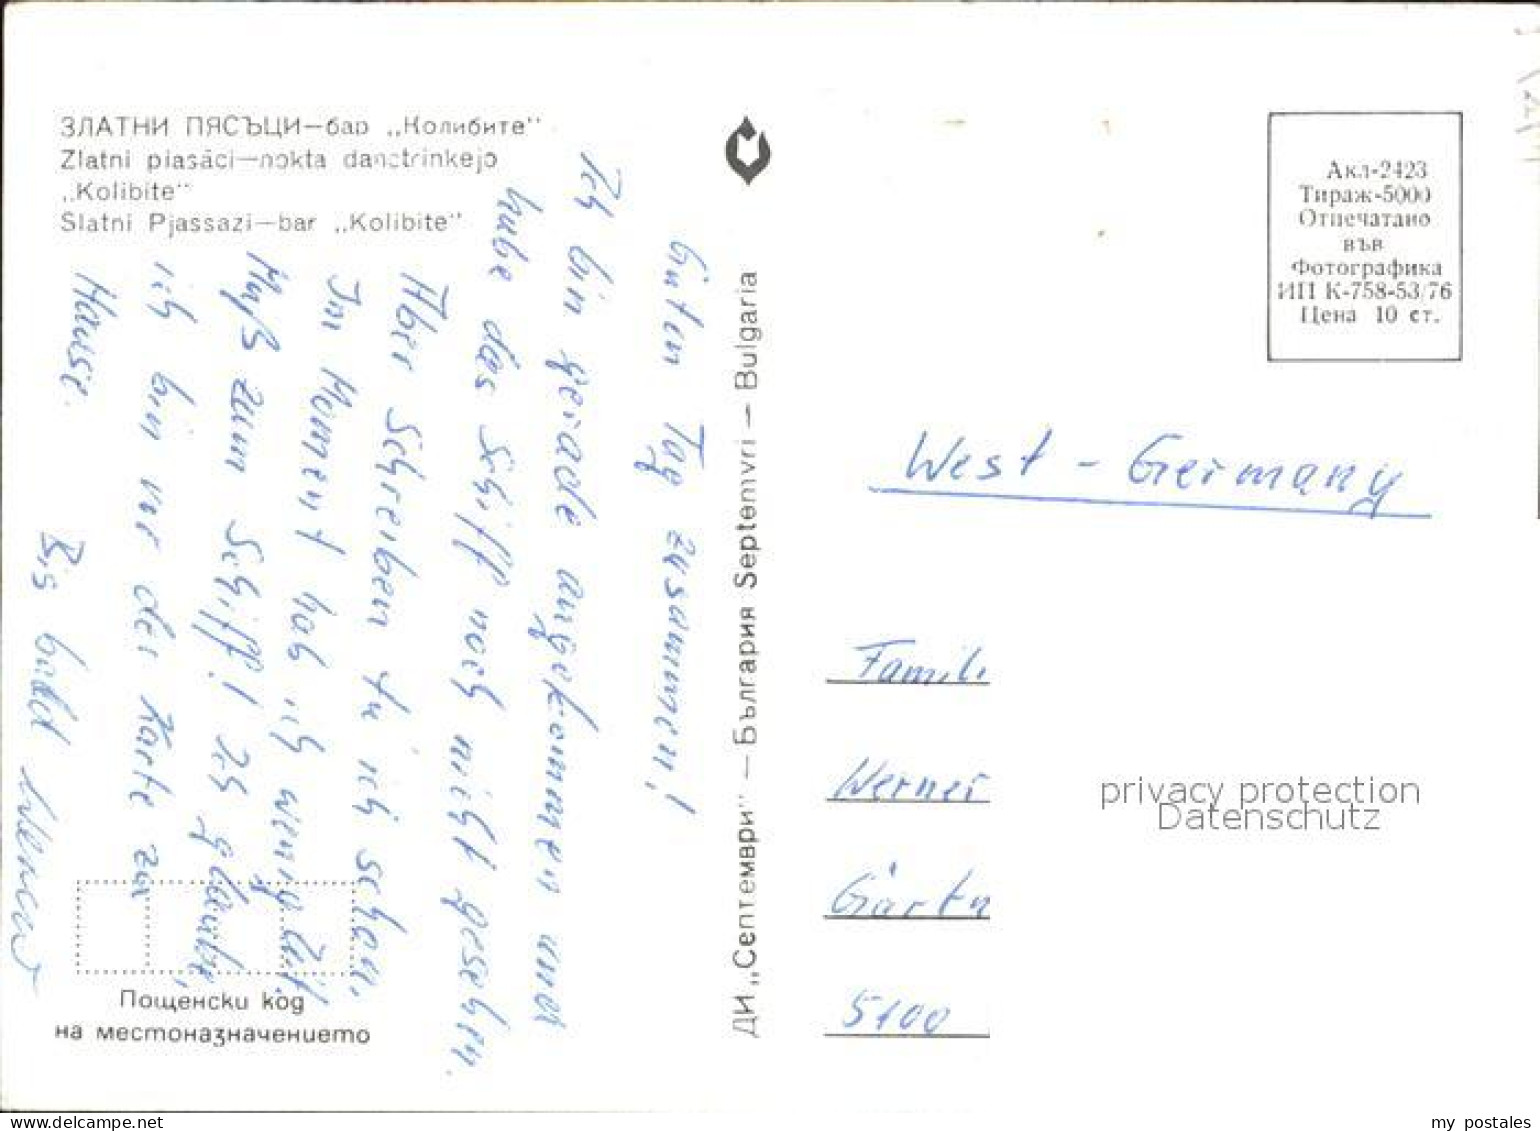 ЗЛАТНИ ПЯСЪЦИ—бар „Колибите"
Zlatni piasâci—nokta danctrinkejo
„Kolibite"
Slatni Pjassazi—bar „Kolibite"
Guten Tag zusammen!
Ich bin gerade angekommen und
habe das Schiff noch nicht gesehen.
Aber Schreiben tu ich schon.
Im Moment hab ich wenig Zeit.
Muß zum Schiff! Ich glaube,
ich bin vor der Karte zu
Hause.
Bis bald
Werner
Пощенски код
на местоназначението
ДИ „Септември" — България Septemvri — Bulgaria
Акл-2423
Тираж-5000
Отпечатано
във
Фотографика
ИП К-758-53/76
Цена 10 ст.
West - Germany
Famili
Werner
Gärtn
5100
privacy protection
Datenschutz
www.delcampe.net
my_postales